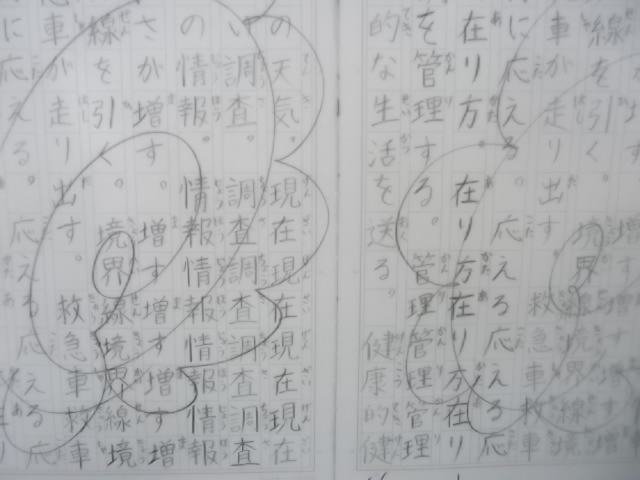 線を引く。境界線境界線境
車が走り出す。救急車救車
に応える。応える応える応
在り方。在り方在り方在り
を管理する。管理管理管理
的な生活を送る。健康的健
の天気。現在現在現在現在
い調査。調査調査調査調査
の情報。情報情報情報情報
さが増す。増す増す増す増
線を引く。境界線境界線境
車が走り出す。救急車救車
に応える。応える応える応